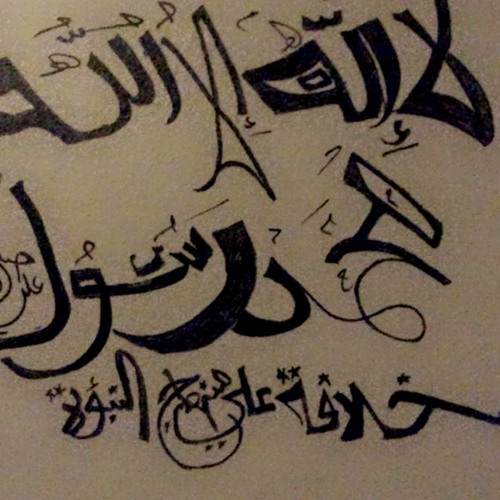 لا إله إلا الله
محمد رسول
خلافة على منهاج النبوة